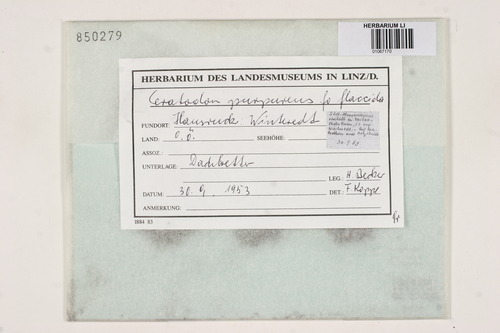 850279
HERBARIUM LI
01067170
HERBARIUM DES LANDESMUSEUMS IN LINZ/D.
Ceratodon purpureus fo flaccida
FUNDORT: Hausruck Winteredt
LAND: O.Ö. SEEHÖHE:
ASSOZ.:
UNTERLAGE: Dachbretter
LEG.: H. Becker
DATUM: 30. 9. 1953 DET.: F. Koppe
ANMERKUNG:
IBM 83
30.9.53